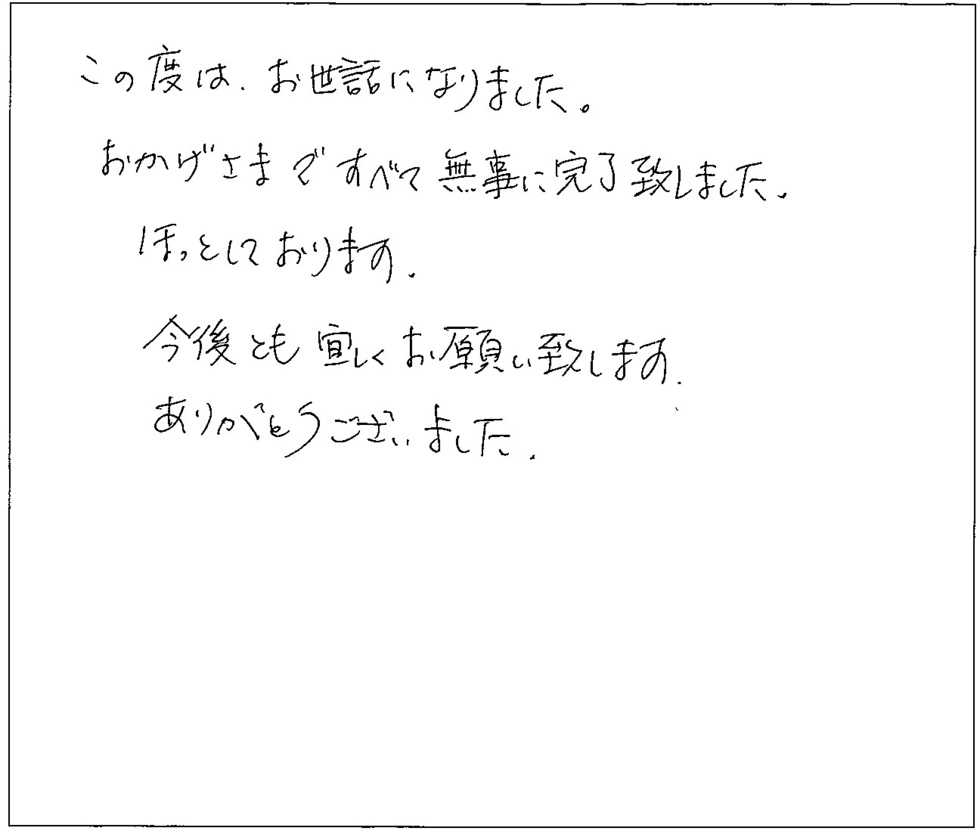 この度は、お世話になりました。
おかげさまですべて無事に完了致しました。
ほっとしております。
今後とも宜しくお願い致します。
ありがとうございました。